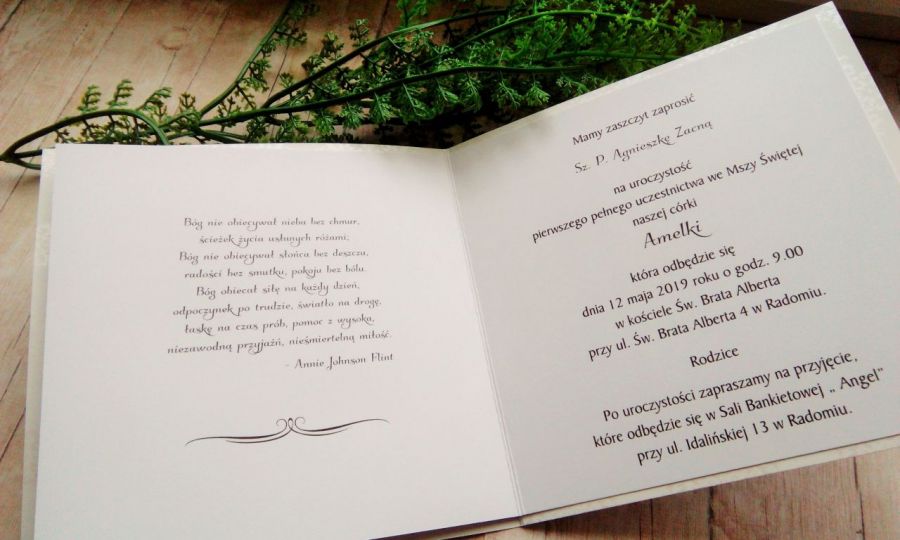 Bóg nie obiecywał nieba bez chmur,
ścieżek życia usłanych różami;
Bóg nie obiecywał słońca bez deszczu,
radości bez smutku, pokoju bez bólu.
Bóg obiecał siłę na każdy dzień,
odpoczynek po trudzie, światło na drogę,
łaskę na czas prób, pomoc z wysoka,
niezawodną przyjaźń, nieśmiertelną miłość.
- Annie Johnson Flint
Mamy zaszczyt zaprosić
Sz. P. Agnieszkę Zacną
na uroczystość
pierwszego pełnego uczestnictwa we Mszy Świętej
naszej córki
Amelki
która odbędzie się
dnia 12 maja 2019 roku o godz. 9.00
w kościele Św. Brata Alberta
przy ul. Św. Brata Alberta 4 w Radomiu.
Rodzice
Po uroczystości zapraszamy na przyjęcie,
które odbędzie się w Sali Bankietowej „ Angel"
przy ul. Idalińskiej 13 w Radomiu.